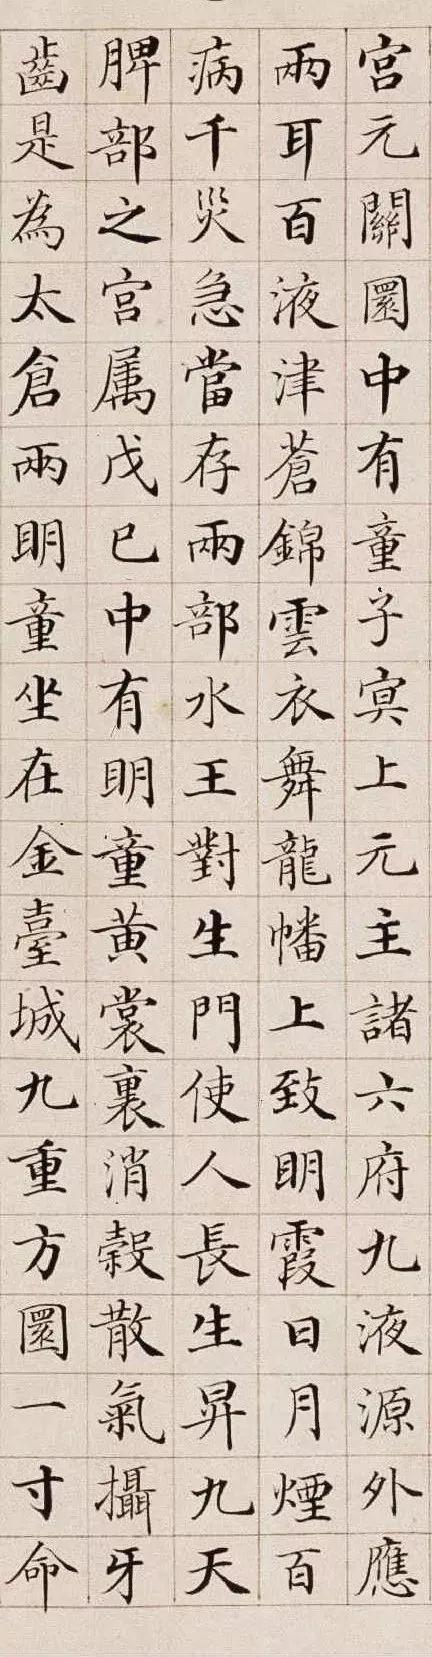 宮元關圓中有童子㝠上元主諸六府九液源外應
兩耳百液津蒼錦雲衣舞龍幡上致明霞日月煙百
病千災急當存兩部水王對生門使人長生昇九天
脾部之宮属戊已中有明童黄裳裏消穀散氣攝牙
齒是為太倉兩明童坐在金臺城九重方圓一寸命